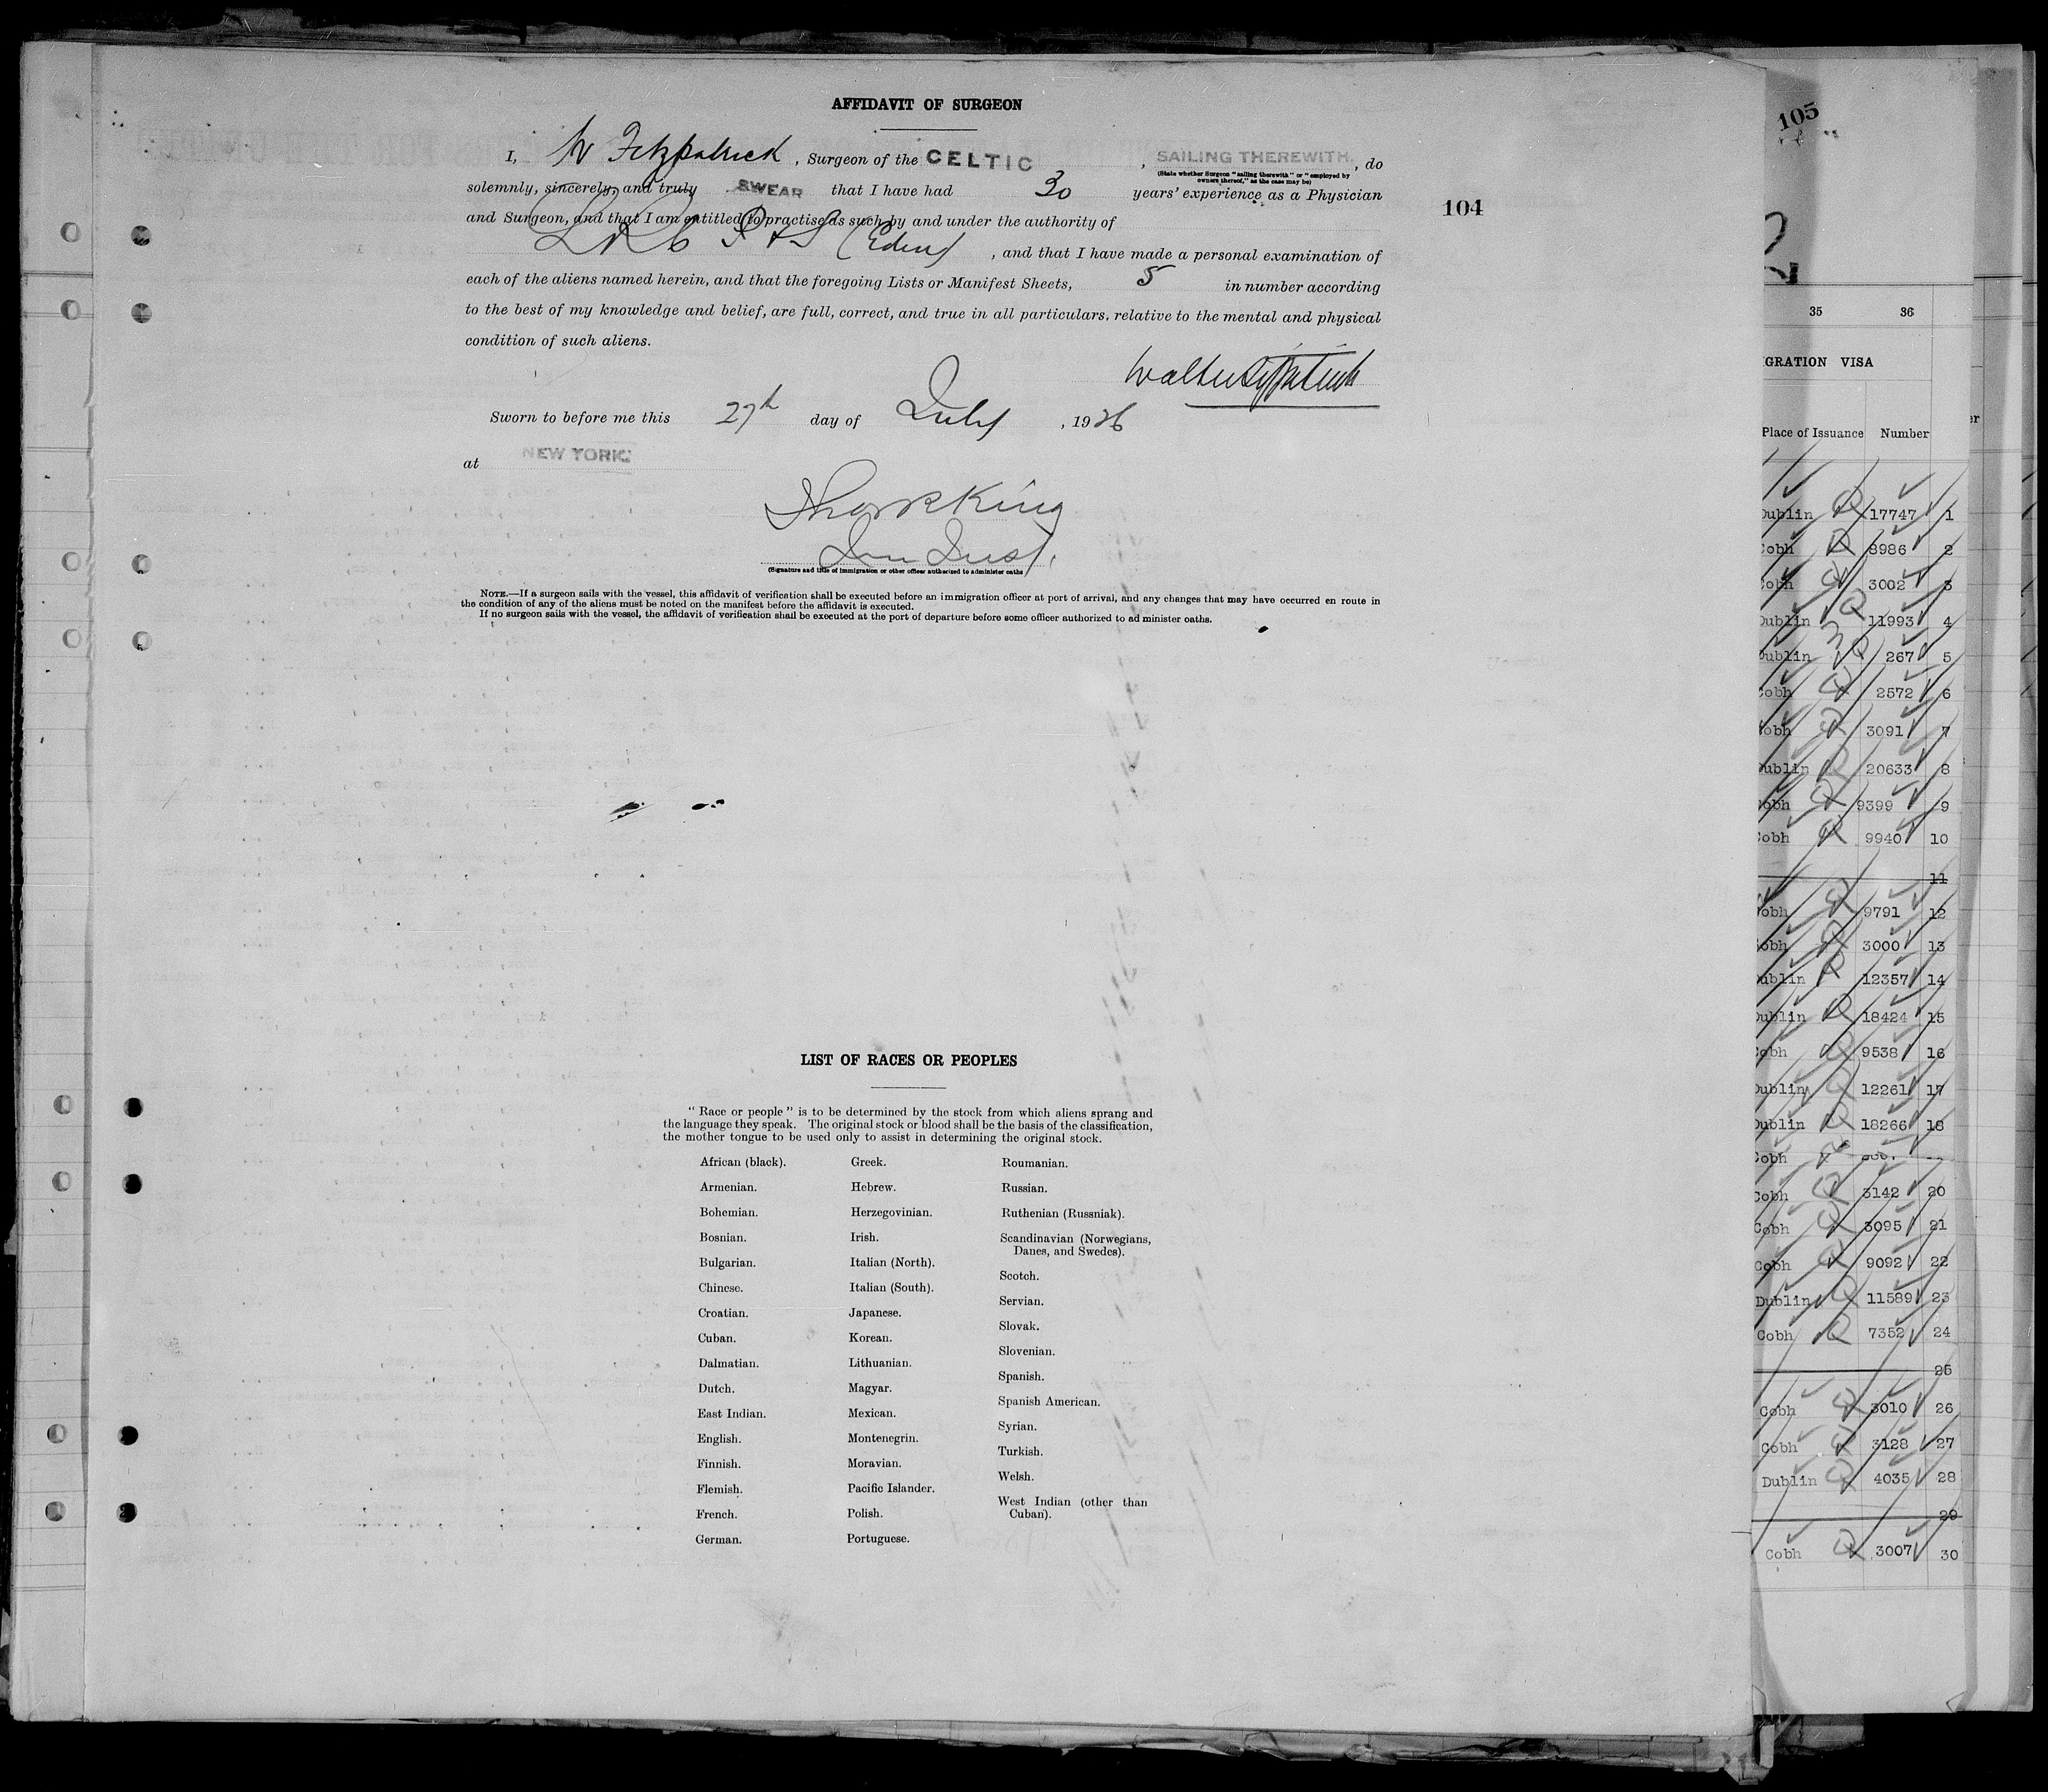 AFFIDAVIT OF SURGEON
I, W Fitzpatrick, Surgeon of the CELTIC, SAILING THEREWITH, do
(State whether Surgeon "sailing therewith" or "employed by
owners thereof," as the case may be)
solemnly, sincerely, and truly SWEAR that I have had 30 years' experience as a Physician
and Surgeon, and that I am entitled to practise as such by and under the authority of
L R C P & S (Edin), and that I have made a personal examination of
each of the aliens named herein, and that the foregoing Lists or Manifest Sheets, 5 in number according
to the best of my knowledge and belief, are full, correct, and true in all particulars, relative to the mental and physical
condition of such aliens.
Walter Fitzpatrick
Sworn to before me this 27th day of July, 1926
at NEW YORK.
King
Imm Insp.
(Signature and title of immigration or other officer authorized to administer oaths
NOTE.—If a surgeon sails with the vessel, this affidavit of verification shall be executed before an immigration officer at port of arrival, and any changes that may have occurred en route in
the condition of any of the aliens must be noted on the manifest before the affidavit is executed.
If no surgeon sails with the vessel, the affidavit of verification shall be executed at the port of departure before some officer authorized to ad minister oaths.
104
LIST OF RACES OR PEOPLES
"Race or people" is to be determined by the stock from which aliens sprang and
the language they speak. The original stock or blood shall be the basis of the classification,
the mother tongue to be used only to assist in determining the original stock.
African (black).
Armenian.
Bohemian.
Bosnian.
Bulgarian.
Chinese.
Croatian.
Cuban.
Dalmatian.
Dutch.
East Indian.
English.
Finnish.
Flemish.
French.
German.
Greek.
Hebrew.
Herzegovinian.
Irish.
Italian (North).
Italian (South).
Japanese.
Korean.
Lithuanian.
Magyar.
Mexican.
Montenegrin.
Moravian.
Pacific Islander.
Polish.
Portuguese.
Roumanian.
Russian.
Ruthenian (Russniak).
Scandinavian (Norwegians,
Danes, and Swedes).
Scotch.
Servian.
Slovak.
Slovenian.
Spanish.
Spanish American.
Syrian.
Turkish.
Welsh.
West Indian (other than
Cuban).
105
35 36
IGRATION VISA
Place of Issuance Number
Dublin 17747 1
Cobh 8986 2
Cobh 3002 3
Dublin 11993 4
Dublin 267 5
Cobh 2572 6
Cobh 3091 7
Dublin 20633 8
Cobh 9399 9
Cobh 9940 10
11
Cobh 9791 12
Cobh 3000 13
Dublin 12357 14
Dublin 18424 15
Cobh 9538 16
Dublin 12261 17
Dublin 18266 18
Cobh
Cobh 3142 20
Cobh 3095 21
Cobh 9092 22
Dublin 11589 23
Cobh 7352 24
25
Cobh 3010 26
Cobh 3128 27
Dublin 4035 28
29
Cobh 3007 30